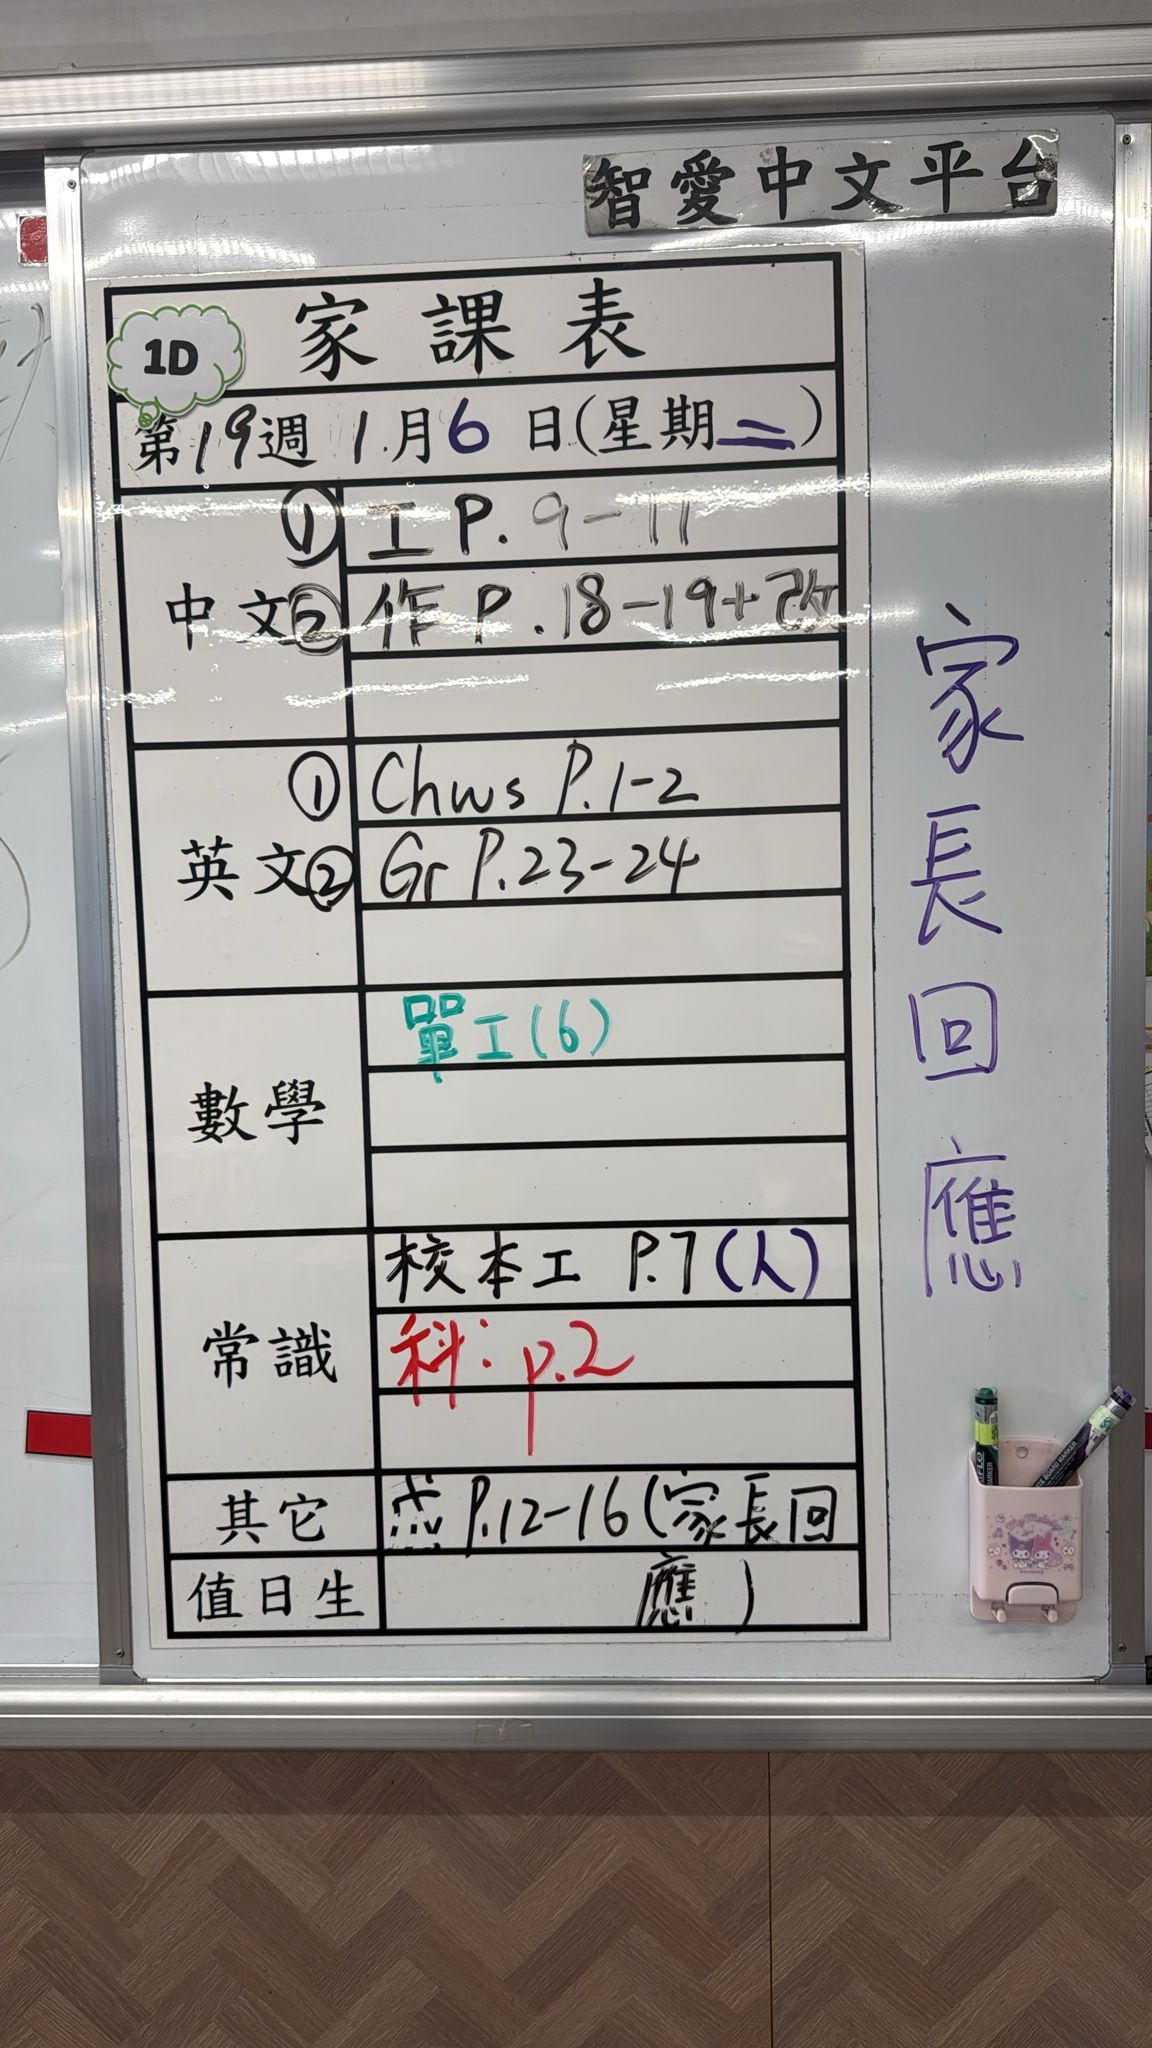 智愛中文平台
1D
家課表
第19週 1月6日(星期二)
中文
① 工 P. 9-11
② 作 P. 18-19+改
英文
① Chws P.1-2
② Gr P.23-24
數學
單工(6)
常識
校本工 P.7(人)
科: p.2
其它
P.12-16(家長回
應)
值日生
家長回應